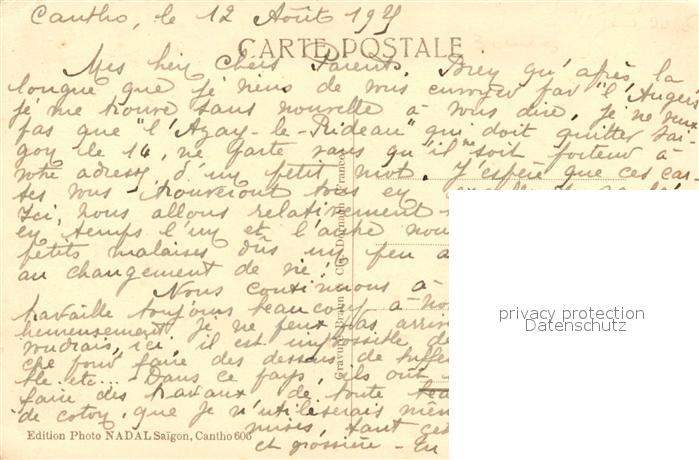 Cantho, le 12 Août 19
CARTE POSTALE
Mes bien Chers Parents. Bien qu'après la
longue que je viens de vous envoyer par "l'Angers"
je me trouve sans nouvelle à vous dire, je ne veux
pas que "l'Azay-le-Rideau" qui doit quitter Saï-
gon le 14, ne parte sans qu'il ne soit porteur à
votre adresse d'un petit mot. J'espère que ces car-
tes vous trouveront tous en
Ici, nous allons relativement
en temps l'un et l'autre nou
petits malaises dûs un peu a
au changement de vie.
Nous continuons à
travaille toujours beaucoup à no
heureusement je ne peux pas arriv
voudrais, ici, il est impossible de
che pour faire des dessous de
tle. etc... Dans ce pays, ils ont
faire des travaux de toute
de coton, que je n'utiliserais mêm
mises, tant
et grossière - En
Gravure Braun & Cie Dornach (France)
Edition Photo NADAL Saïgon, Cantho 606
privacy protection
Datenschutz